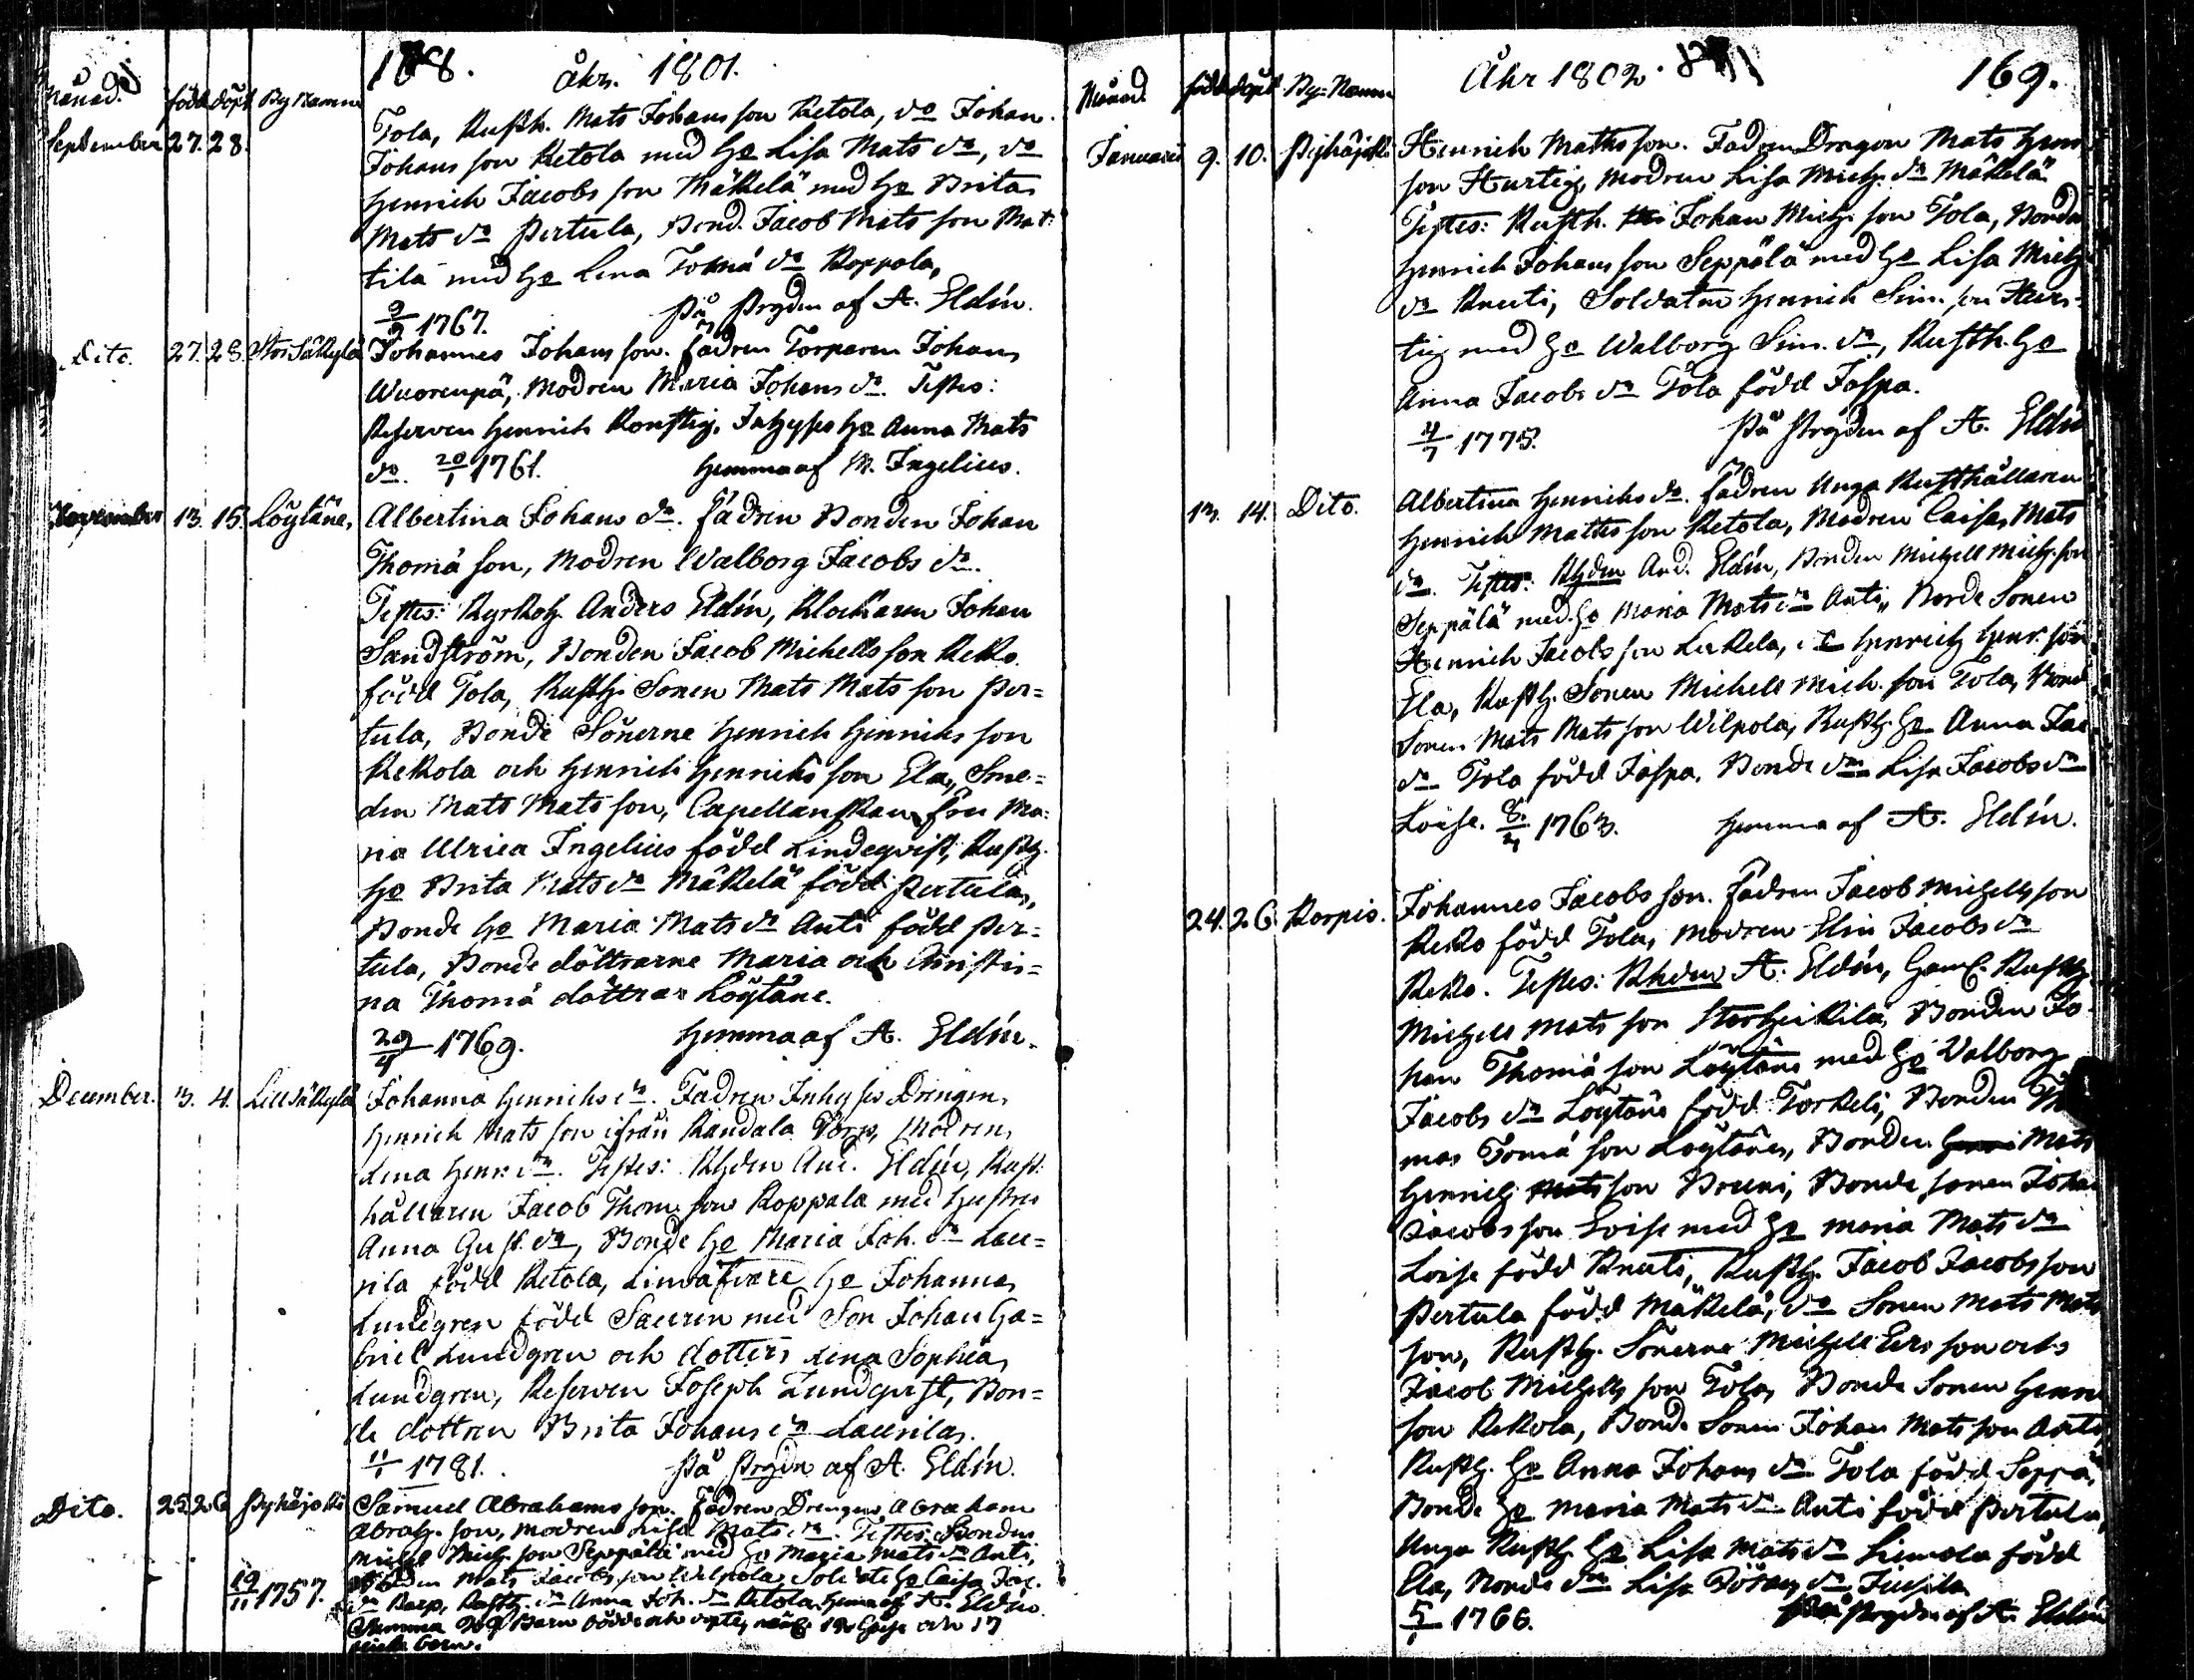 168. Åhr. 1801.
Månad. född döpt By Namn
September 27. 28. Tola, Rusth. Mats Johans son Ketola, do Johan
Johans son Ketola med Ho Lisa Mats dr, do
Henrich Jacobs son Mäkelä med Ho Brita
Mats dr Pertula, Bond. Jacob Mats son Mat:
tila med Ho Lena Tomä dr Koppala,
9/9 1767. På Prgden af A. Eldín.
Dito. 27. 28. Stor Säkylä Johannes Johans son. fadren Torparen Johan
Wuorenpä, Modren Maria Johans dr. Testes:
Reserven Henrich Konstig, Inhyses Ho Anna Mats
dr. 20/1 1761. Hemma af M. Ingelius.
November 13. 15. Löytäne, Albertina Johans dr. fadren Bonden Johan
Thomä son, Modren Walborg Jacobs dr.
Testes: Kyrkoh. Anders Eldín, Klockaren Johan
Sandström, Bonden Jacob Michells son Keko
född Tola, Rusth. Sonen Mats Mats son Per=
tula, Bonde Sönerne Henrich Henrichs son
Kekola och Henrich Henrichs son Ela, Sme=
den Mats Mats son, Capellanskan fru Ma:
ria Ulrica Ingelius född Lindeqvist, Rusth.
Ho Brita Mats dr Mäkelä född Pertula,
Bonde Ho Maria Mats dr Anti född Per=
tula, Bonde döttrarne Maria och Christi=
na Thomä döttrar Löytäne.
29/4 1769. Hemma af A. Eldín.
December. 3. 4. Lill Säkylä Johanna Henrichs dr. Fadren Inhyses Drengen
Henrich Mats son ifrån Kandala Torp, Modren
Lena Henr. dr. Testes: Khden And. Eldín, Rust:
hållaren Jacob Thom. son Koppala med Hustru
Anna Gust. dr, Bonde Ho Maria Joh. dr Lau=
rila född Ketola, Linväfvare Ho Johanna
Lundgren född Sauren med Son Johan Ga=
briel Lundgren och dotter Lena Sophia
Lundgren, Reserven Joseph Lundqvist, Bon=
de dottren Brita Johans dr Laurila.
11/1 1781. På Prgdn af A. Eldín.
Dito. 25. 26. Pyhäjoki Samuel Abrahams son. Fadren Drengen Abraham
Abrah. son, modren Lisa Mats dr. Testes: Bonden
Michel Mich. son Seppälä med Ho Maria Mats dr Anti,
Mats Jacobs son Wilpola, Ho Caisa Jac.
19/11 1757. dr Rusth. dr Anna Joh. dr Ketola. Hemma af A. Eldín.
Summa Barn födde och döpte, 
barn.
Åhr 1802. 169.
Månad. född döpt By=Namn
Januarii 9. 10. Pyhäjoki Henrich Maths son. Fadren Dragon Mats Henr.
son Hurtig, Modren Lisa Mich. dr Mäkelä
Testes: Rusth. Johan Mich. son Tola, Bonden
Henrich Johans son Seppälä med Ho Lisa Mich.
dr Knuti, Soldaten Henrich Sim. son Hur=
tig med Ho Walborg Sim. dr, Rusth. Ho
Anna Jacobs dr Tola född Jaspa.
4/7 1775. På Prgden af A. Eldín
13. 14. Dito. Albertina Henrichs dr. fadren Unga Rusthållaren
Henrich Matts son Ketola, Modren Caisa Mats
dr. Testes: Khden And. Eldín, Bonden Michell Mich. son
Seppälä med Ho Maria Mats dr Anti, Bonde Sonen
Henrich Jacobs son Kekela, do Henrich Henr. son
Ela, Rusth. Sonen Michell Mich. son Tola, Bond
Sonen Mats Mats son Wilpola, Rusth. Ho Anna Jac.
dr Tola född Jaspa, Bonde dr Lisa Jacobs dr
Loise. 1763. Hemma af A. Eldín.
24. 26. Korpis. Johannes Jacobs son. fadren Jacob Michells son
Keko född Tola, Modren Elin Jacobs dr
Keko. Testes: Khden A. Eldín, Gaml. Rusth.
Michell Mats son Storheikila, Bonden Jo
han Thomä son Löytäne med Ho Valborg
Jacobs dr Löytäne född Torkeli, Bonden Th
mas Tomä son Löytäne, Bonden Mats
Henrich son Bruni, Bonde sonen Johan
Jacobs son Loise med Ho Maria Mats dr
Loise född Knuti, Rusth. Jacob Jacobs son
Pertula född Mäkelä, do Sonen Mats Mats
son, Rusth. Sönerne Michell Ers son och
Jacob Michells son Tola, Bonde Sonen Henr.
son Kekola, Bonde Sonen Johan Mats son Anti,
Rusth. Ho Anna Johans dr Tola född Seppä,
Bonde Ho Maria Mats dr Anti född Pertula,
Unga Rusth. Ho Lisa Mats dr Liemola född
Ela, Bonde dr Lisa Johans dr Jusila
5/1 1766. På Prgden af A. Eldín